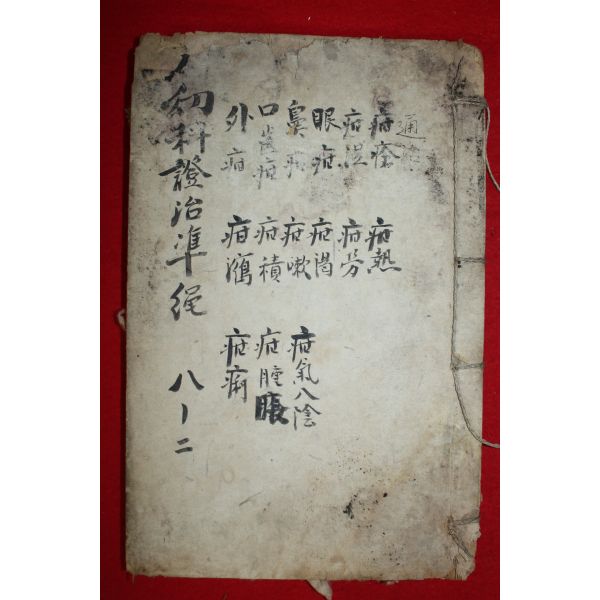 通
疳 疳熱
疳湿 疳労
眼疳 疳渴
鼻疳 疳嗽 疳氣入陰
口齒疳 疳積 疳腫脹
外疳 疳瀉 疳痢
幼科證治準绳 八ノ二